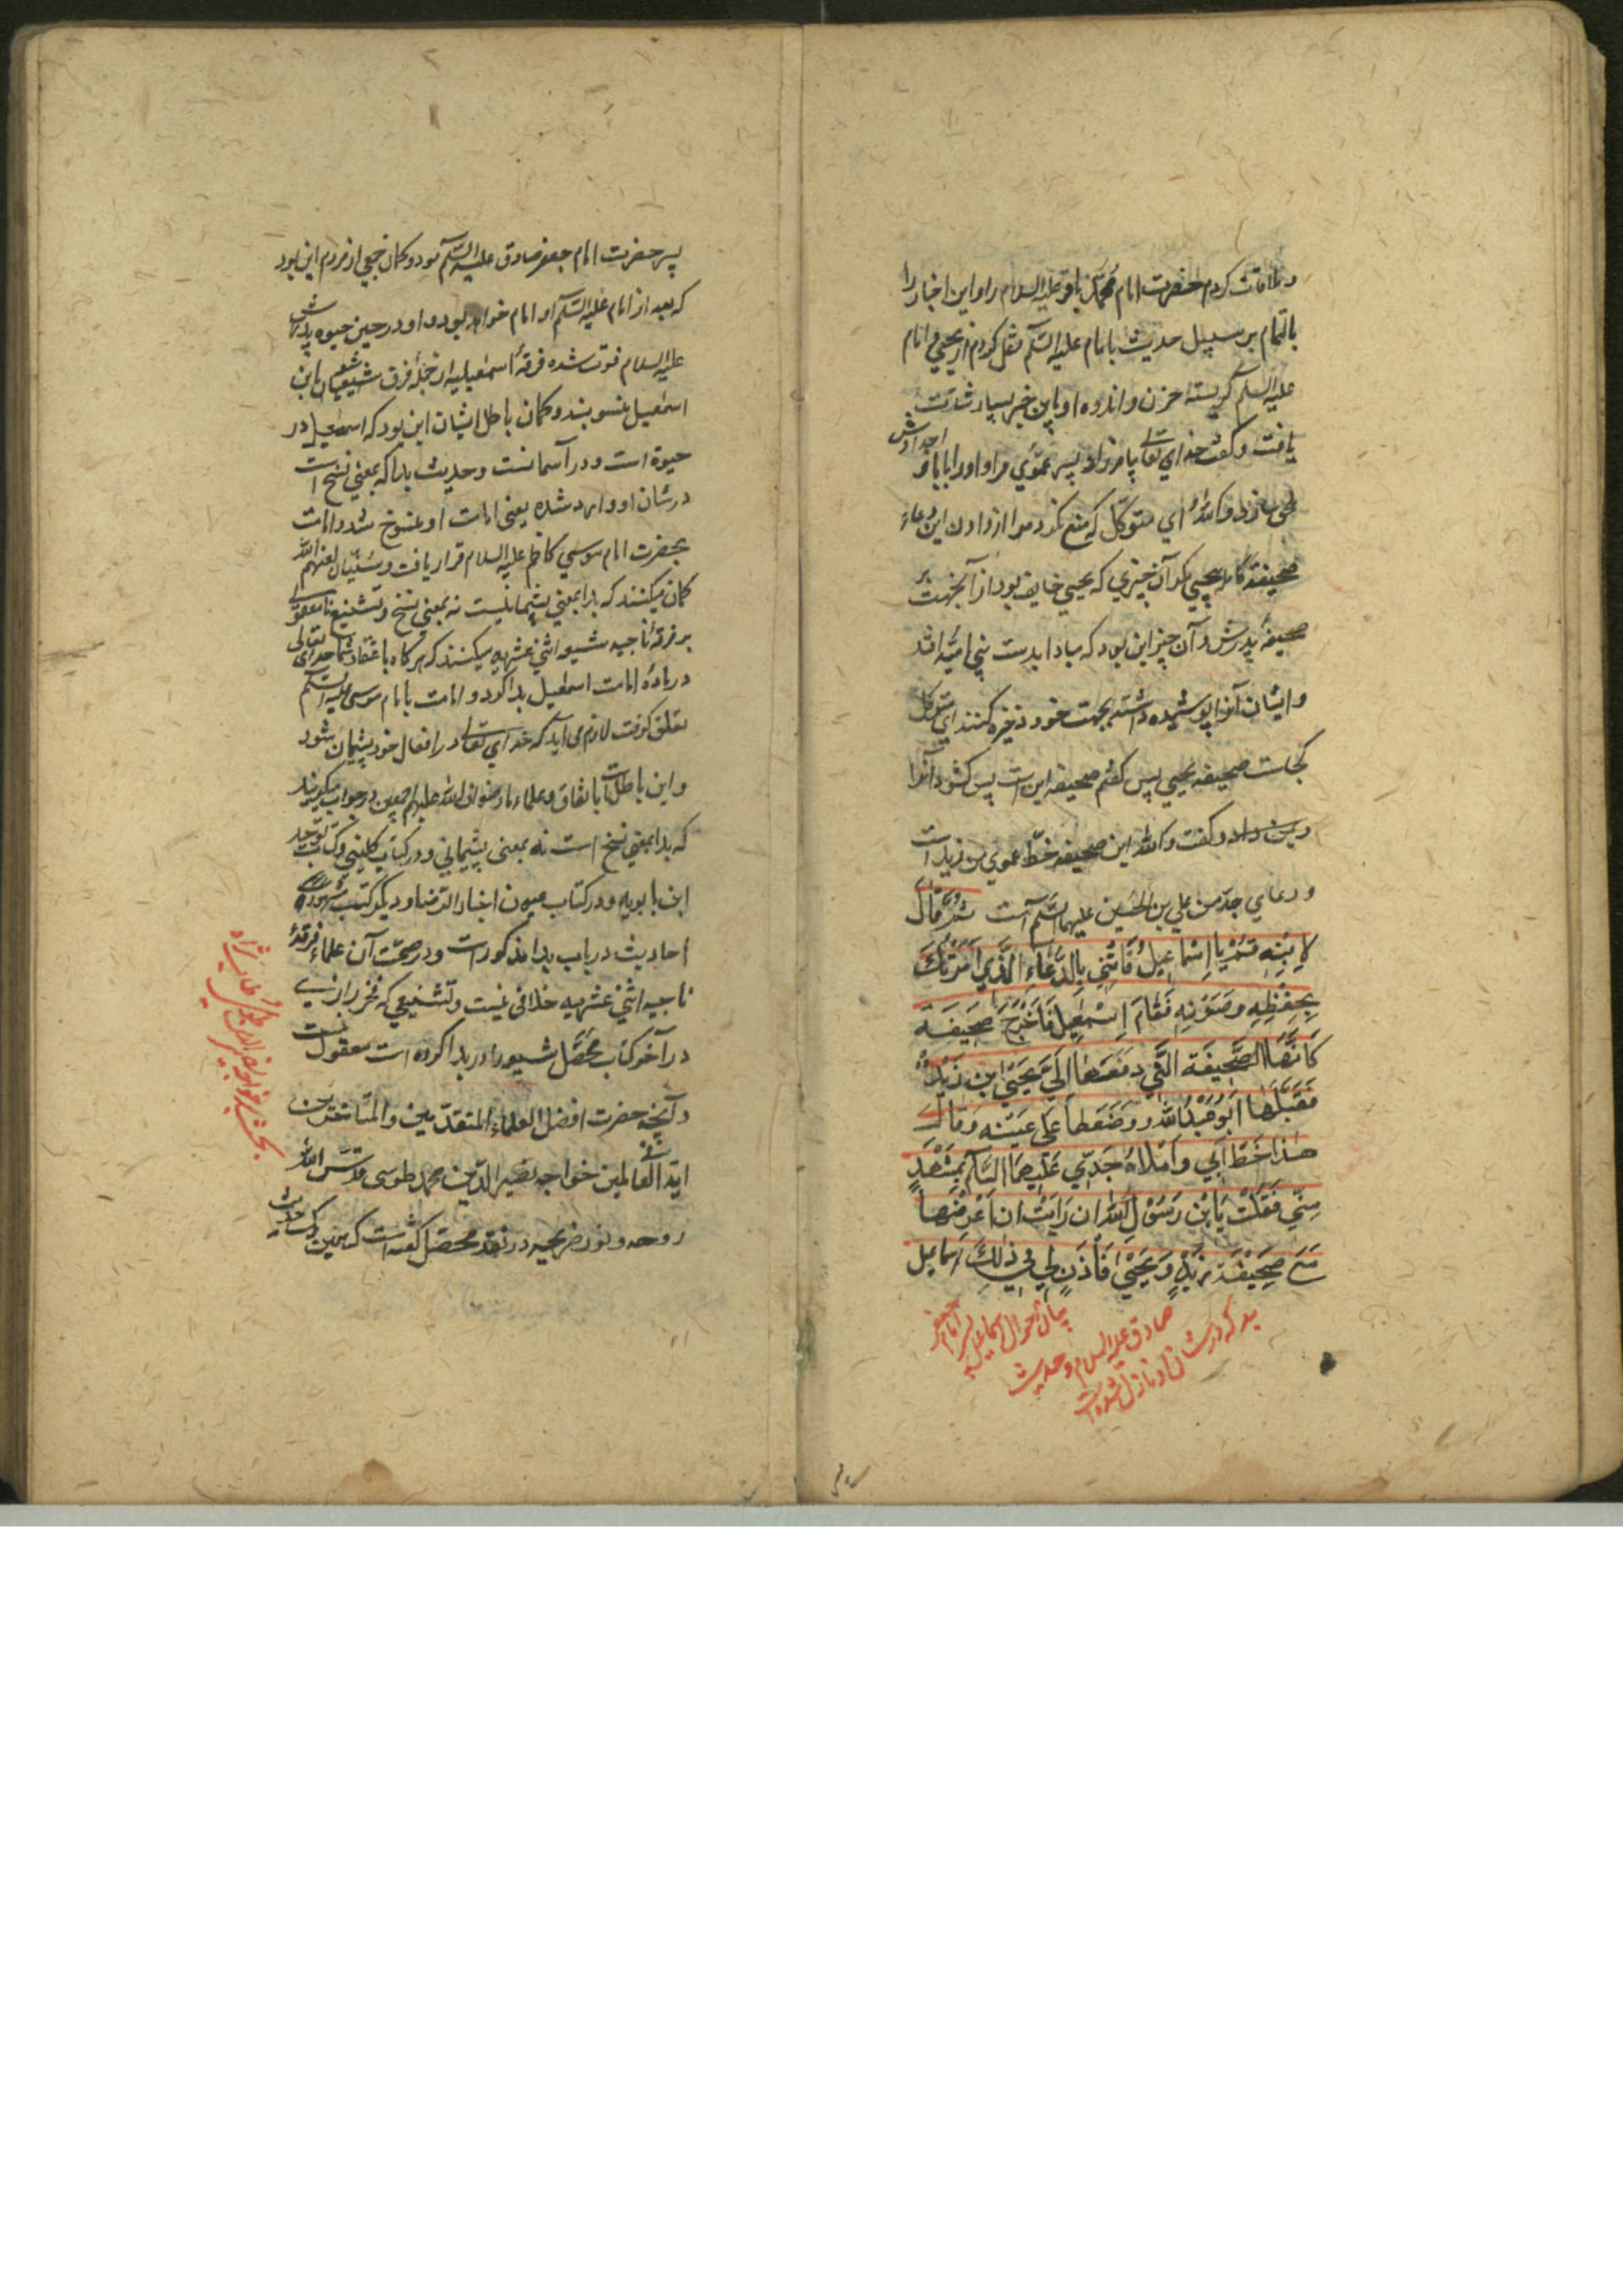 و ملاقات کردم حضرت امام محمد باقر علیه السلام را و این اخبار را
بالتمام بر سبیل حدیث با امام علیه السلم نقل کردم از یحیی و امام
علیه السلم گریسته حزن و اندوه او باین خبر بسیار شدت
یافت و گفت خدای تعالی بیامرزاد پسر عموی مرا و او را بابا و اجدادش
ملحق سازد والله ای متوکل که منع نکرد مرا از دادن این دعاء
صحیفه کامله بیحیی مکر آن چیزی که یحیی خایف بود از آنجهت بر
صحیفه پدرش و آن چیز این بود که مبادا بدست بنی امیه افتد
و ایشان آنرا پوشیده داشته بجهت خود ذخیره کنند ای متوکل
کجاست صحیفه یحیی پس گفتم صحیفه اینست پس کشود آنرا
و بمن داد و گفت والله این صحیفه خط عموی من زید است
و دعای جد من علی بن الحسین علیهما السلم است ثُمَّ قَالَ
لِابْنِهِ قُمْ یَا اِسْمَاعِیلُ فَأْتِنِی بِالدُّعَاءِ الَّذِی اَمَرْتُکَ
بِحِفْظِهِ وَصَوْنِهِ فَقَامَ اِسْمٰعِیلُ فَاَخْرَجَ صَحِیفَةً
کَاَنَّهَا الصَّحِیفَة الَّتِی دَفَعَهَا اِلَیَّ یَحْیَی ابْن زَیْدٍ
فَقَبَّلَهَا اَبُو عَبْدِ اللّٰهِ وَوَضَعَهَا عَلَی عَیْنِهِ وَقَالَ
هٰذَا خَطُّ اَبِی وَاِمْلَاءُ جَدِّی عَلَیْهِمَا السَّلَمُ بِمَشْهَدٍ
مِنِّی فَقُلْتُ یَا بْنَ رَسُوْلِ اللّٰهِ اِنْ رَاَیْتَ اَنْ اَعْرِضَهَا
مَعَ صَحِیْفَةِ زَیْدٍ وَیَحْیَی فَاَذِنَ لِی فِی ذٰلِکَ اسماعیل
بیان احوال اسماعیل پسر امام جعفر
صادق علیه السلام و حدیث
بد که در شان او نازل شده است
پسر حضرت امام جعفر صادق علیه السلم بود و کمان جمعی از مردم این بود
که بعد از امام علیه السلم او امام خواهد بود و او در حین حیوه پدرش
علیه السلام فوت شده فرقه اسمعیلیه از جمله فرق شیعه باین
اسمعیل منسوبند و کمان باطل ایشان این بود که اسمعیل در
حیوة است و در آسمانست و حدیث بدا که بمعنی نسخ است
در شان او وارد شده یعنی امامت او منسوخ شد و امامت
بحضرت امام موسی کاظم علیه السلام قرار یافت و سنیان لعنهم الله
کمان میکنند که بدا بمعنی پشیمانیست نه بمعنی نسخ و تشنیع نامعقولی
بر فرقه ناجیه شیعه اثنی عشریه میکنند که هر کاه باعتقاد شما خدای تعالی
در ماده امامت اسمعیل بدا کرد و امامت بامام موسی علیه السلم
تعلق کرفت لازم می آید که خدای تعالی در افعال خود پشیمان شود
و این باطلست باتفاق و علماء ما رضوان الله علیهم اجمعین در جواب میکویند
که بدا بمعنی نسخ است نه بمعنی پشیمانی و در کتاب کلینی و کتاب توحید
ابن بابویه و در کتاب عیون اخبار الرضا و دیگر کتب مشهوره
احادیث در باب بدا مذکور است و در صحت آن علماء فرقه
ناجیه اثنی عشریه خلافی نیست و تشنیعی که فخر رازی
در آخر کتاب محصل شیعه را در بدا کرده است معقول نیست
و آنچه حضرت افضل العلماء المتقدمین و المتاخرین
ایة الله فی العالمین خواجه نصیر الدین محمد طوسی قدس الله
روحه و نور ضریحه در نقد محصل گفته است که همین یکحدیث